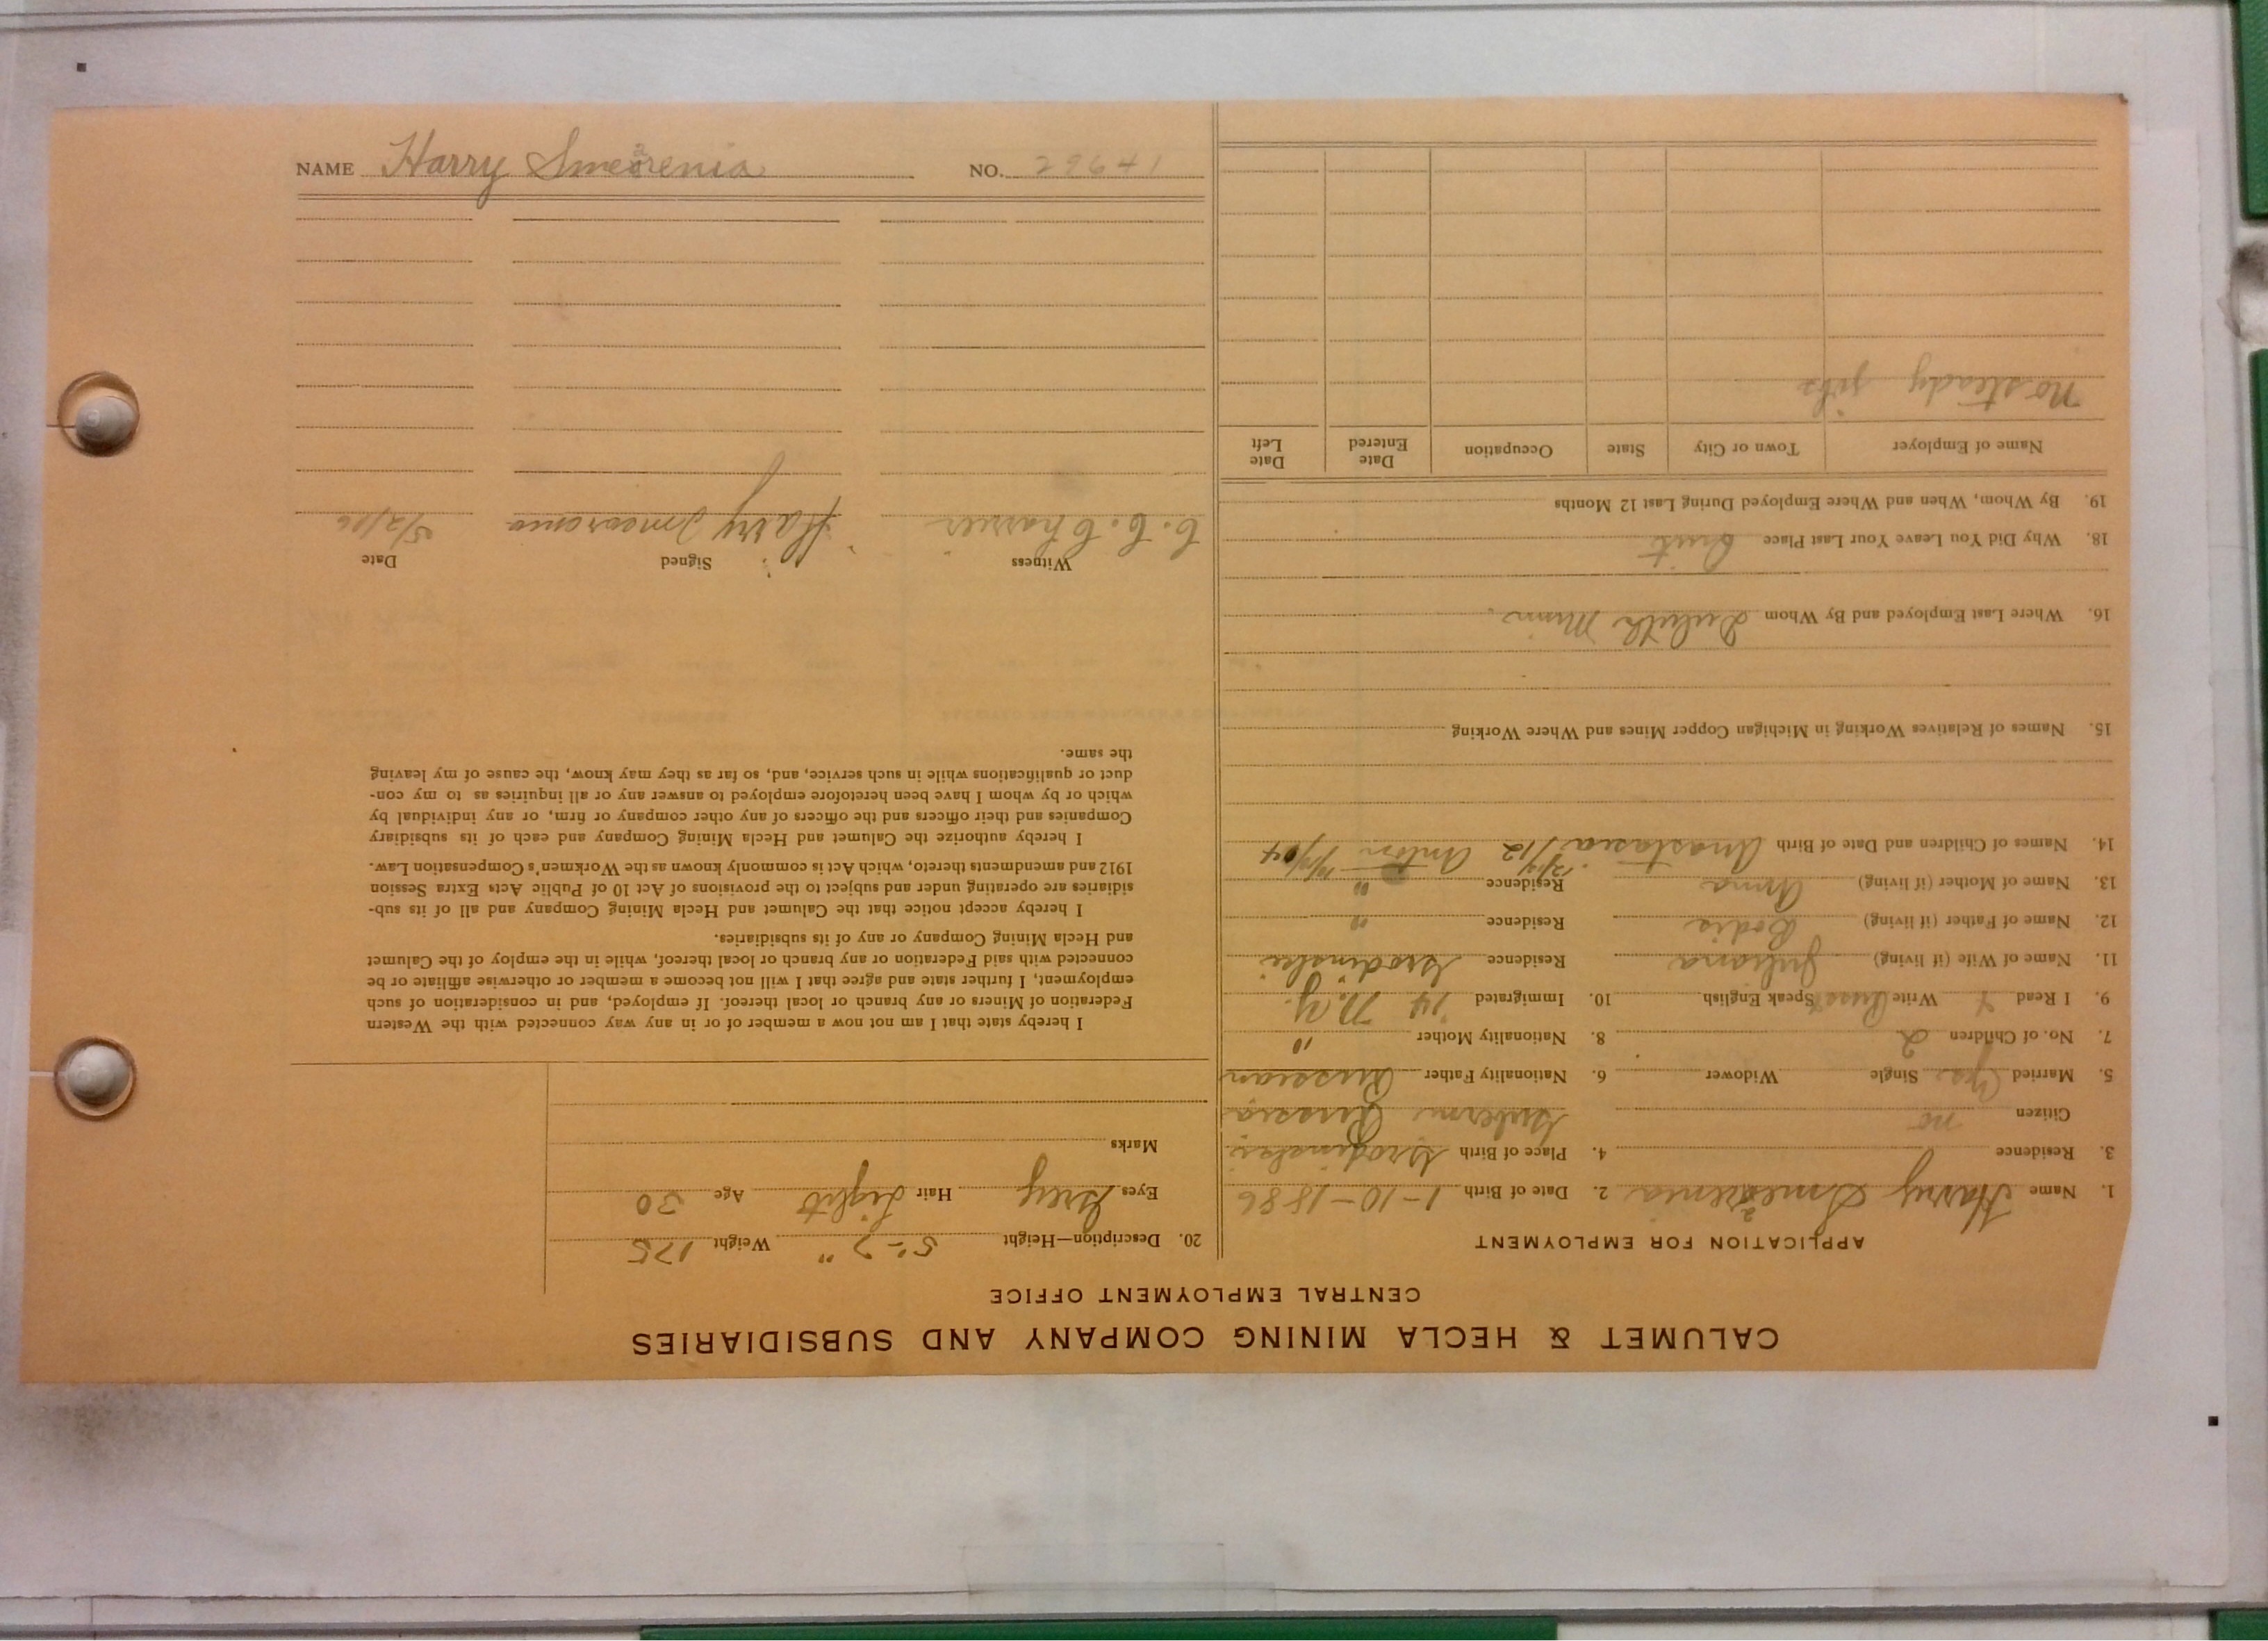 CALUMET & HECLA MINING COMPANY AND SUBSIDIARIES
CENTRAL EMPLOYMENT OFFICE
APPLICATION FOR EMPLOYMENT
1. Name Harry Smearenia 2. Date of Birth 1-10-1886
3. Residence 4. Place of Birth Grodinskei
Citizen no Guberni Russia
5. Married Yes Single Widower 6. Nationality Father Russian
7. No. of Children 2 8. Nationality Mother "
9. I Read Write Russ Speak English 10. Immigrated '14 N.Y.
11. Name of Wife (if living) Juliana Residence Grodinskei
12. Name of Father (if living) Residence "
13. Name of Mother (if living) Anna Residence "
14. Names of Children and Date of Birth Anastasia /12 Anton /04
15. Names of Relatives Working in Michigan Copper Mines and Where Working
16. Where Last Employed and By Whom Duluth Minn.
18. Why Did You Leave Your Last Place Quit
19. By Whom, When and Where Employed During Last 12 Months
Name of Employer Town or City State Occupation Date Entered Date Left
No steady jobs
20. Description—Height 5'-7" Weight 175
Eyes Grey Hair Light Age 30
Marks
I hereby state that I am not now a member of or in any way connected with the Western
Federation of Miners or any branch or local thereof. If employed, and in consideration of such
employment, I further state and agree that I will not become a member or otherwise affiliate or be
connected with said Federation or any branch or local thereof, while in the employ of the Calumet
and Hecla Mining Company or any of its subsidiaries.
I hereby accept notice that the Calumet and Hecla Mining Company and all of its sub-
sidiaries are operating under and subject to the provisions of Act 10 of Public Acts Extra Session
1912 and amendments thereto, which Act is commonly known as the Workmen's Compensation Law.
I hereby authorize the Calumet and Hecla Mining Company and each of its subsidiary
Companies and their officers and the officers of any other company or firm, or any individual by
which or by whom I have been heretofore employed to answer any or all inquiries as to my con-
duct or qualifications while in such service, and, so far as they may know, the cause of my leaving
the same.
Witness Signed Date
C. C. Charrier Harry Smearenia 5/2/16
NAME Harry Smearenia NO. 29641